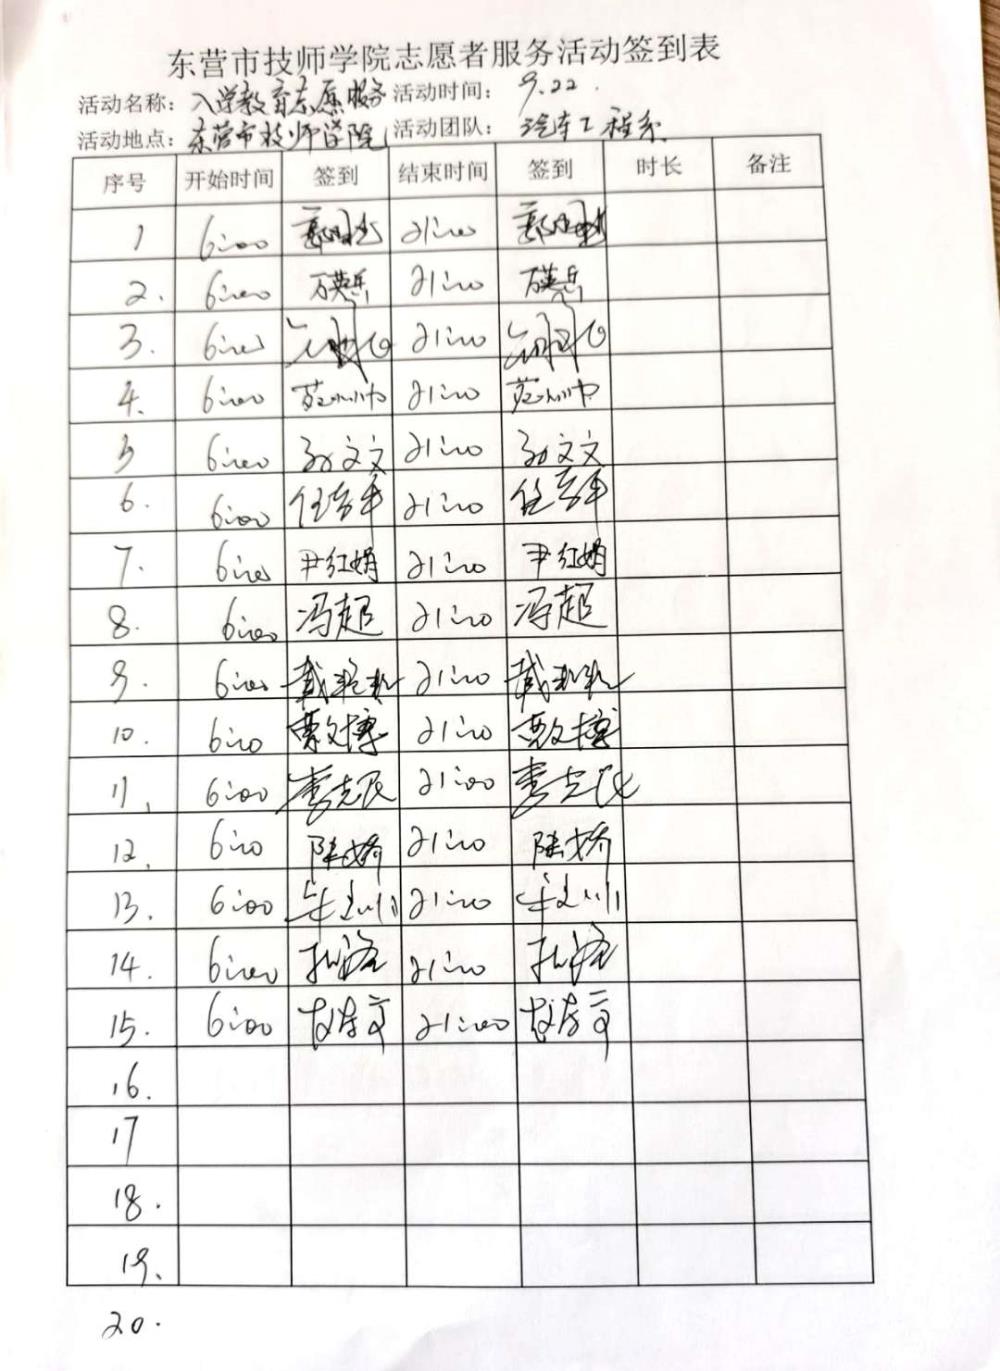 东营市技师学院志愿者服务活动签到表
活动名称：入学教育志愿服务 活动时间：9.22.
活动地点：东营市技师学院 活动团队：汽车工程系
序号 开始时间 签到 结束时间 签到 时长 备注
1 6:00 21:00
2. 6:00 万英岳 21:00 万英岳
3. 6:00 21:00
4. 6:00 21:00
5 6:00 孙文文 21:00 孙文文
6. 6:00 任吉平 21:00 任吉平
7. 6:00 尹红娟 21:00 尹红娟
8. 6:00 冯超 21:00 冯超
9. 6:00 21:00
10. 6:00 贾文博 21:00 贾文博
11. 6:00 李志民 21:00 李志民
12. 6:00 陆娇 21:00 陆娇
13. 6:00 21:00
14. 6:00 21:00
15. 6:00 21:00
16.
17
18.
19.
20.